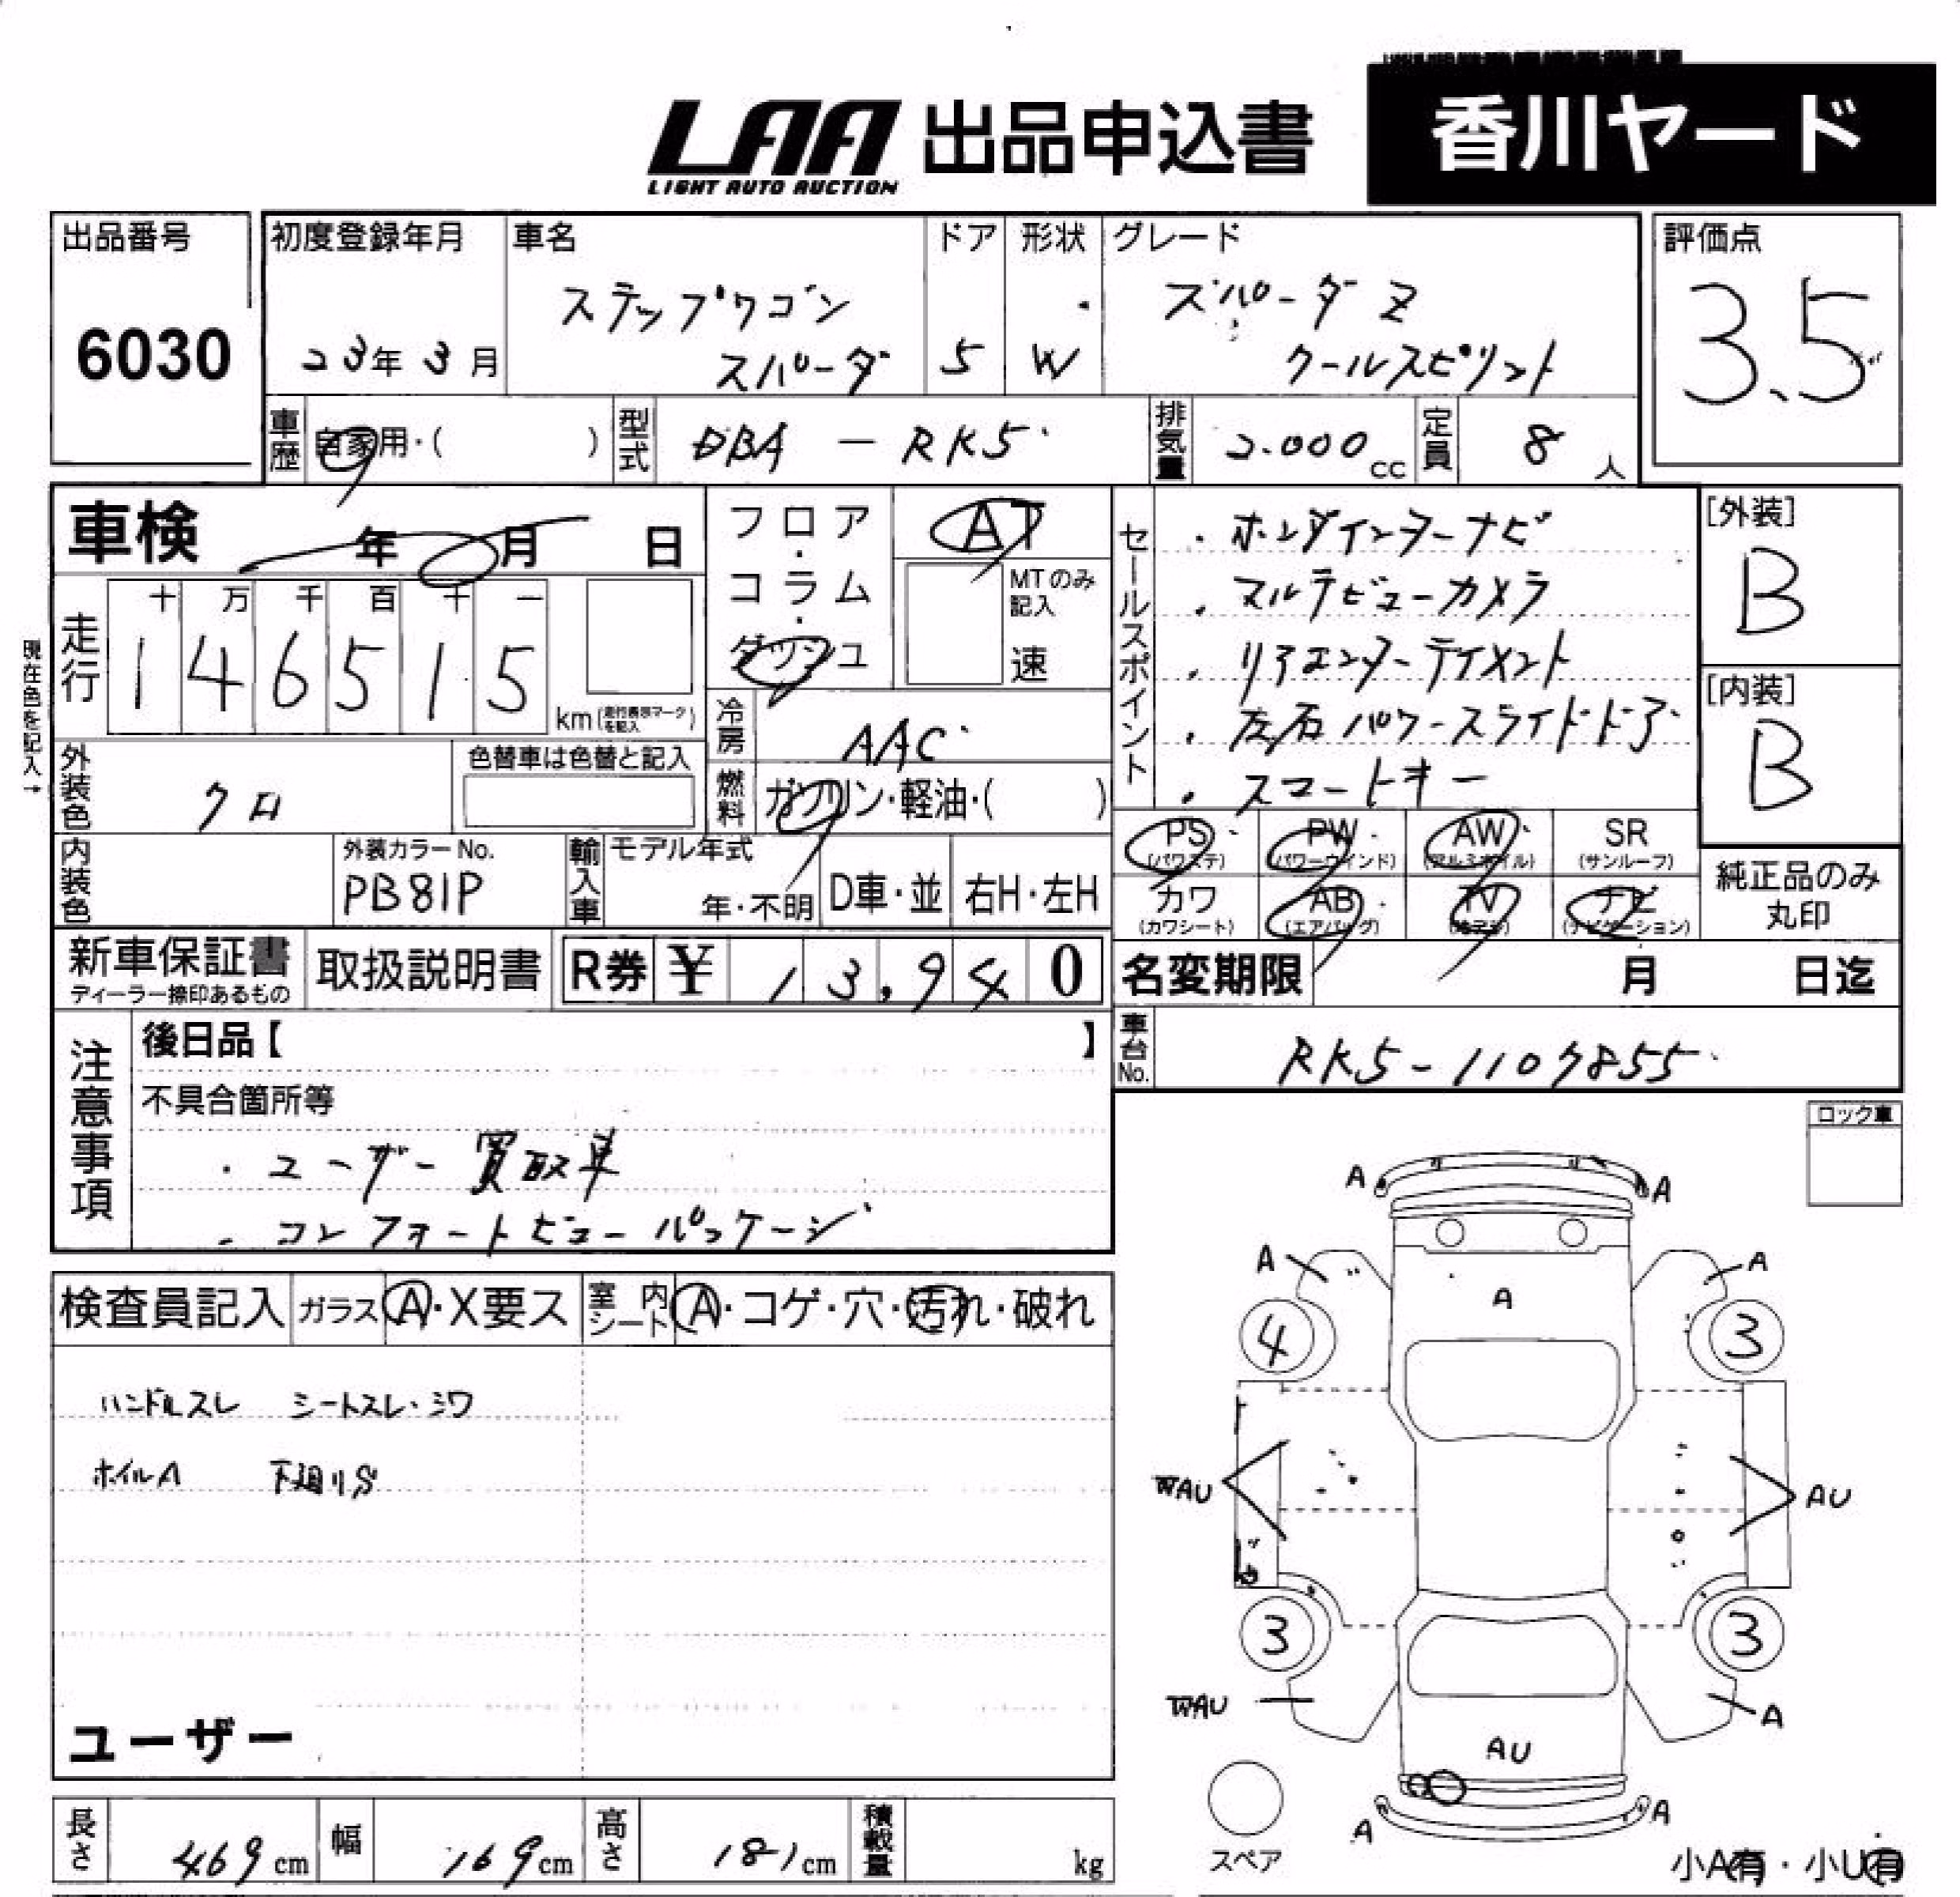 LAA 出品申込書 香川ヤード
LIGHT AUTO AUCTION
出品番号 初度登録年月 車名 ドア 形状 グレード 評価点
6030 23年3月 ステップワゴン スパーダ 5 W スパーダZ クールスピリット 3.5
車歴 自家用・( ) 型式 DBA-RK5 排気量 2.000cc 定員 8人
車検 年 月 日
フロア・コラム・ダッシュ AT
MTのみ記入 速
セールスポイント
・ホンダインターナビ
・マルチビューカメラ
・リアエンターテイメント
・左右パワースライドドア
・スマートキー
[外装]
B
[内装]
B
現在色を記入→
走行 十 万 千 百 十 一
146515 km(走行表示マークを記入)
冷房 AAC
燃料 ガソリン・軽油・( )
外装色 クロ 色替車は色替と記入
内装色 外装カラーNo. PB81P 輸入車 モデル年式 年・不明 D車・並 右H・左H
PS(パワステ) PW(パワーウインド) AW(アルミホイル) SR(サンルーフ)
カワ(カワシート) AB(エアバッグ) TV ナビ(ナビゲーション)
純正品のみ丸印
新車保証書 ディーラー捺印あるもの 取扱説明書 R券 ¥13,940
名変期限 月 日迄
車台No. RK5-1107855
注意事項
後日品【 】
不具合箇所等
・ユーザー買取車
・コンフォートビューパッケージ
ロック車
検査員記入 ガラス A・X要ス 室内シート A・コゲ・穴・汚れ・破れ
ハンドルスレ シートスレ・シワ
ホイルA 下廻りS
ユーザー
A A
A A
A
4 3
WAU AU
3 3
WAU A
AU
A A
スペア
小A有・小U有
長さ 469cm 幅 169cm 高さ 181cm 積載量 kg